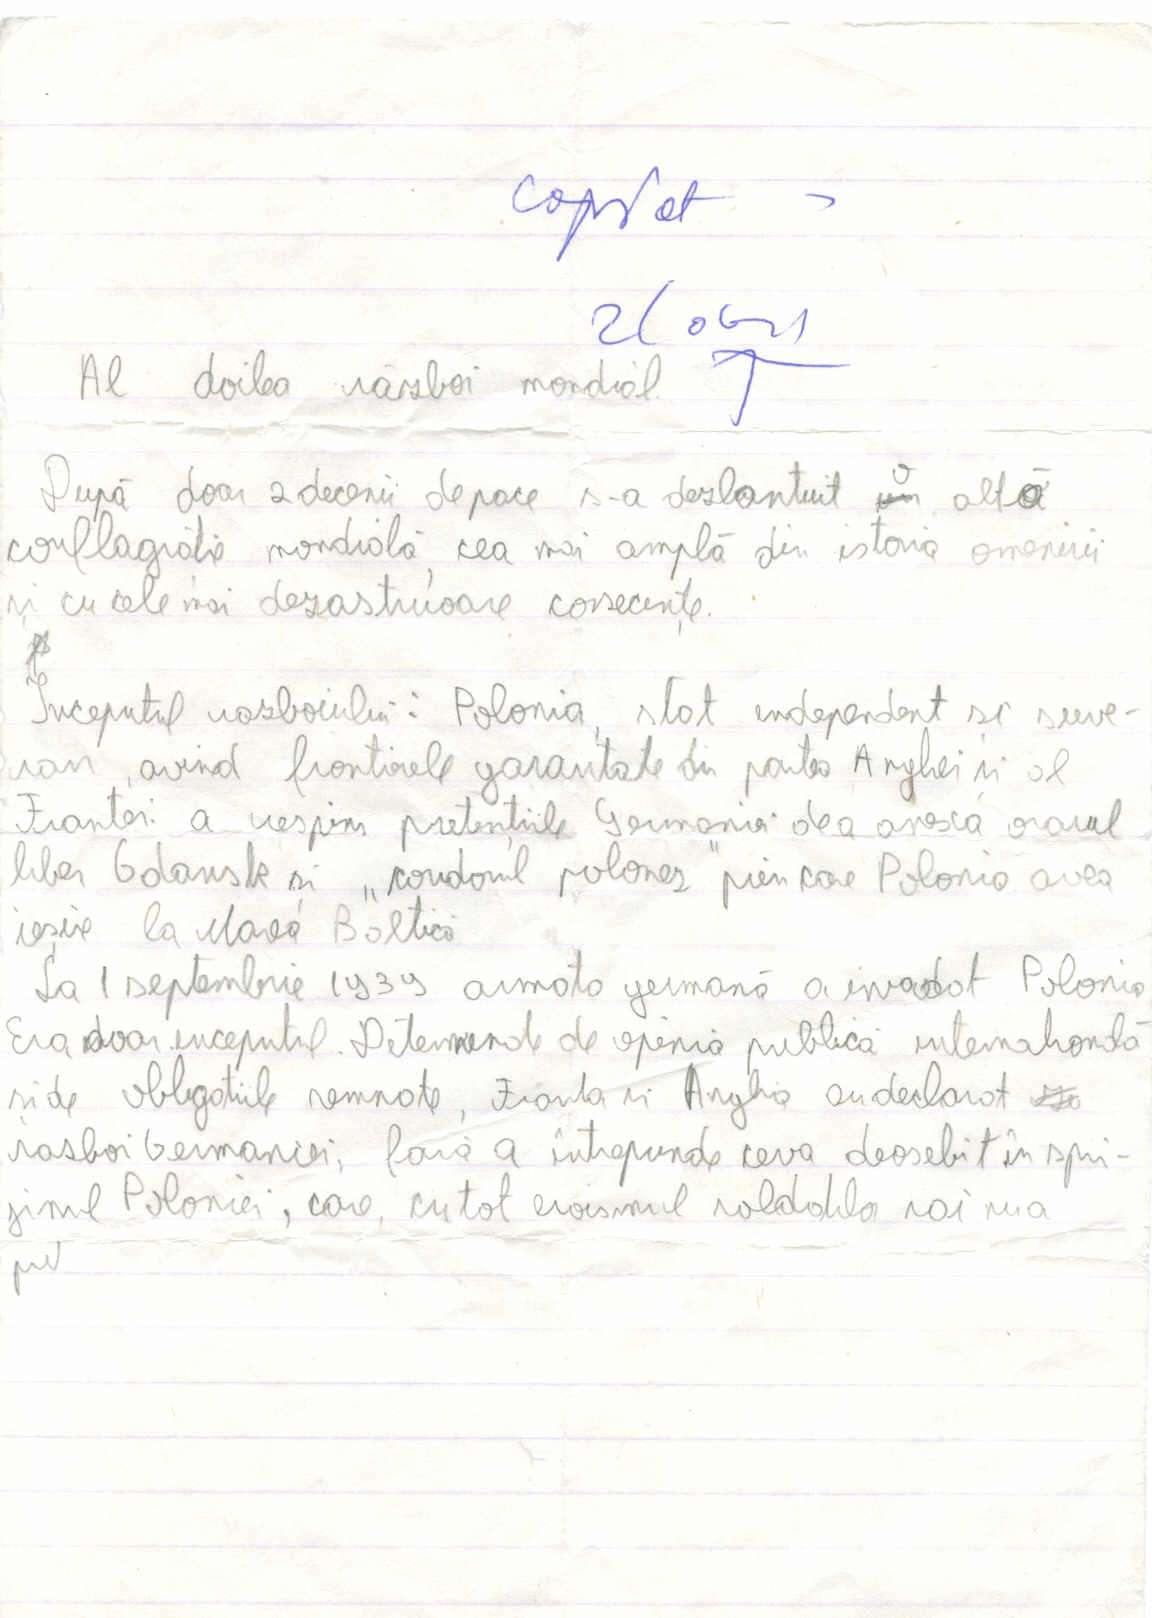 copiat
2(
Al doilea război mondial.
După doar 2 decenii de pace s-a dezlantuit o altă
conflagrație mondială, cea mai amplă din istoria omenirii
și cu cele mai dezastruoare consecențe.
Începutul razboiului: Polonia, stat independent și suve-
ran, avind frontierele garantate din partea Angliei și al
Frantei a respins pretențiile Germaniei de a anexa orasul
liber Gdansk și „coridorul polonez" prin care Polonia avea
ieșire la Marea Baltică
La 1 septembrie 1939 armata germană a invadat Polonia
Era doar inceputul. Determinate de opinia publică internationala
si de obligatiile semnate, Franta si Anglia au declarat
razboi Germaniei, fara a întreprinde ceva deosebit în spri-
jinul Poloniei, care, cu tot eroismul soldatilor sai nu a